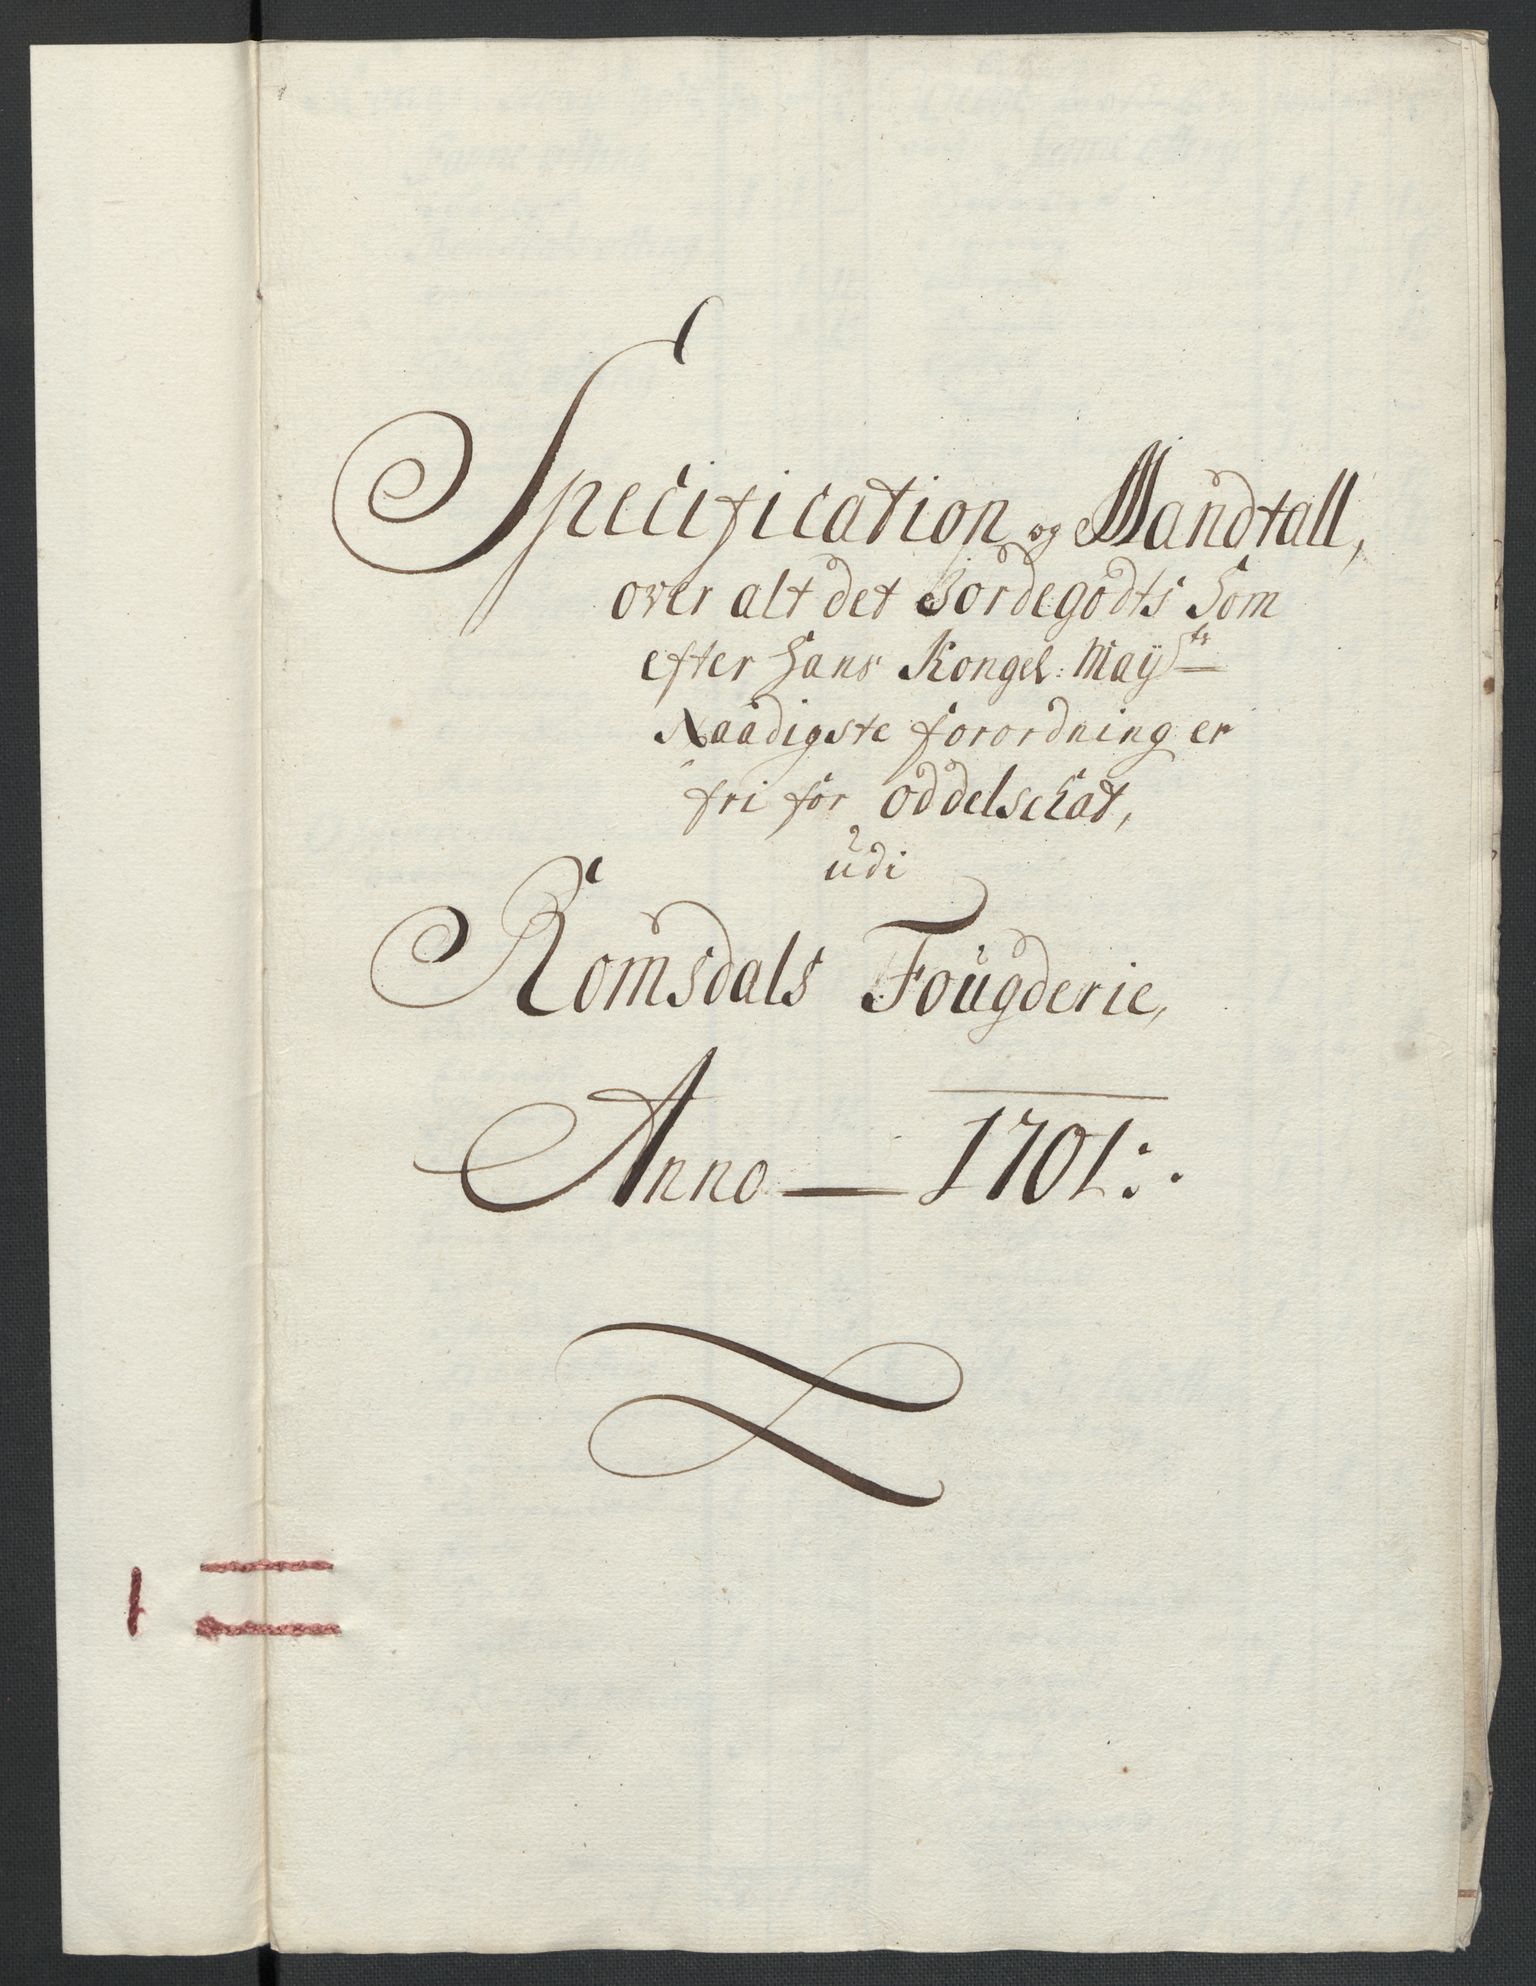 Specification og Mandtall,
over alt det Jordegodts Som
efter Hans Kongel: Maÿts
Naadigste forordning er
fri for Oddelschat,
udi
Romsdals Fougderie,
Anno — 1701:.